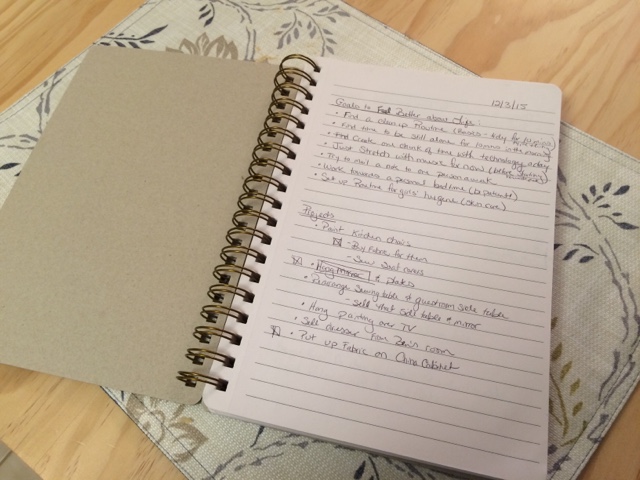 12/3/15
Goals to Feel Better about Life:
• Find a cleanup Routine (
• Find time to be still alone for
• Create one chunk of time with technology
• Just Stretch with music for now (
• Try to mail a note to one person a week
• Work towards a personal bedtime (
• Set up Routine for girls' hygiene (skin care)
Projects
• Paint Kitchen chairs
- Buy Fabric for them
- Sew Seat covers
• Hang Mirror & plates
• Rearrange Sewing table & guestroom side table
- Sell that side table & mirror
• Hang painting over TV
• Sell dresser from room
• Put up Fabric on China Cabinet